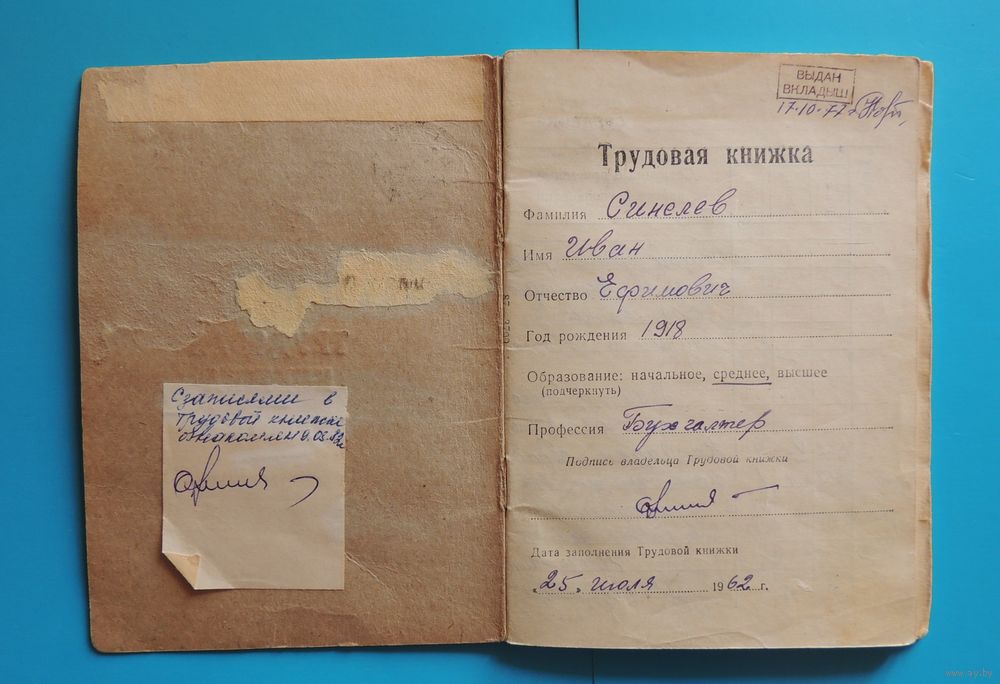 С записями в
трудовой книжке
ознакомлен
ВЫДАН
ВКЛАДЫШ
17-10-77
Трудовая книжка
Фамилия Синелев
Имя Иван
Отчество Ефимович
Год рождения 1918
Образование: начальное, среднее, высшее
(подчеркнуть)
Профессия Бухгалтер
Подпись владельца Трудовой книжки
Дата заполнения Трудовой книжки
"25" июля 1962 г.
www.ay.by